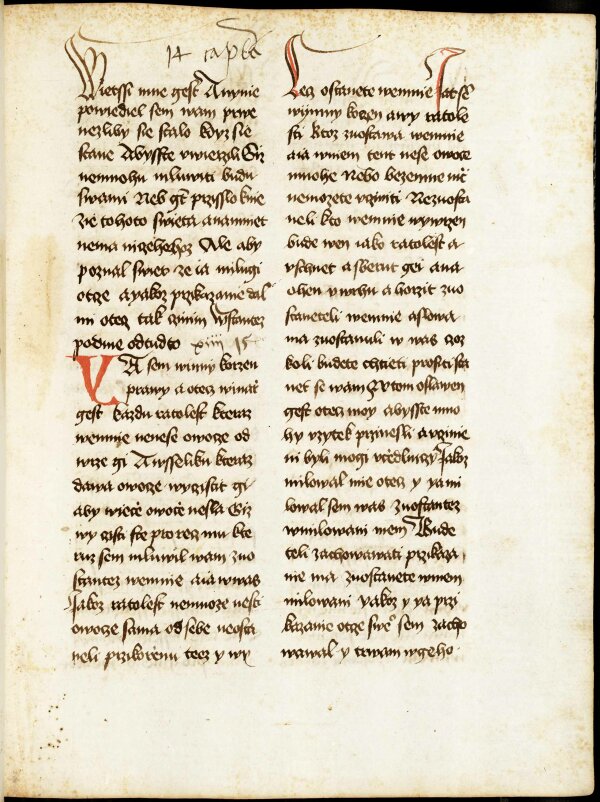 14 cap
Wietssi mne gest A nynie
powiediel sem wam prwe
nezliby sie stalo kdyz sie
stane Abysste vwierzili Giz
nemnohu mluwiti budu
swami Neb gt przisslo knie
zie tohoto swieta anamnet
nema niczehehoz Ale aby
poznal swiet ze ia milugi
otcze ayakoz przikazanie dal
mi otecz tak czinim Wstantez
podme odtudto xiiii 15
YA sem winny korzen
prawy a otecz winarz
gest Kazdu ratolest kteraz
wemnie nenese owocze od
wrze gi A wsseliku kteraz
dawa owocze wyczistit gi
aby wiecze owocze nesla Giz
wy czisti ste pro rzecz mu kte
ruz sem mluwil wam zuo
stantez wemnie aia wwas
Jakoz ratolest nemuoze nesti
owocze sama od sebe neosta
neli przikorzenu tecz y wy
Lecz ostanete wemnie Jat sem
winny korzen awy ratole
sti Ktoz zuostawa wemnie
aia wniem tent nese owocze
mnohe Nebo bezemne nicz
nemozete vcziniti Nezuosta
neli kto wemnie wywrzen
bude wen iako ratolest a
vschnet asberut gei ana
ohen vwrhu ahorzit zuo
staneteli wemnie aslowa
ma zuostanuli w was czoz
koli budete chtieti prositi sta
net se wam Wtom oslawen
gest otecz moy abysste mno
hy vzytek przinesli avczinie
ni byli mogi vczedlniczy Jakoz
milowal mie otecz y ya mi
lowal sem was zuostantez
wmilowani mem Bude
teli zachowawati przikaza
nie ma zuostanete wmem
milowani yakoz y ya przi
kazanie otcze swe sem zacho
wawal y trwam wgeho